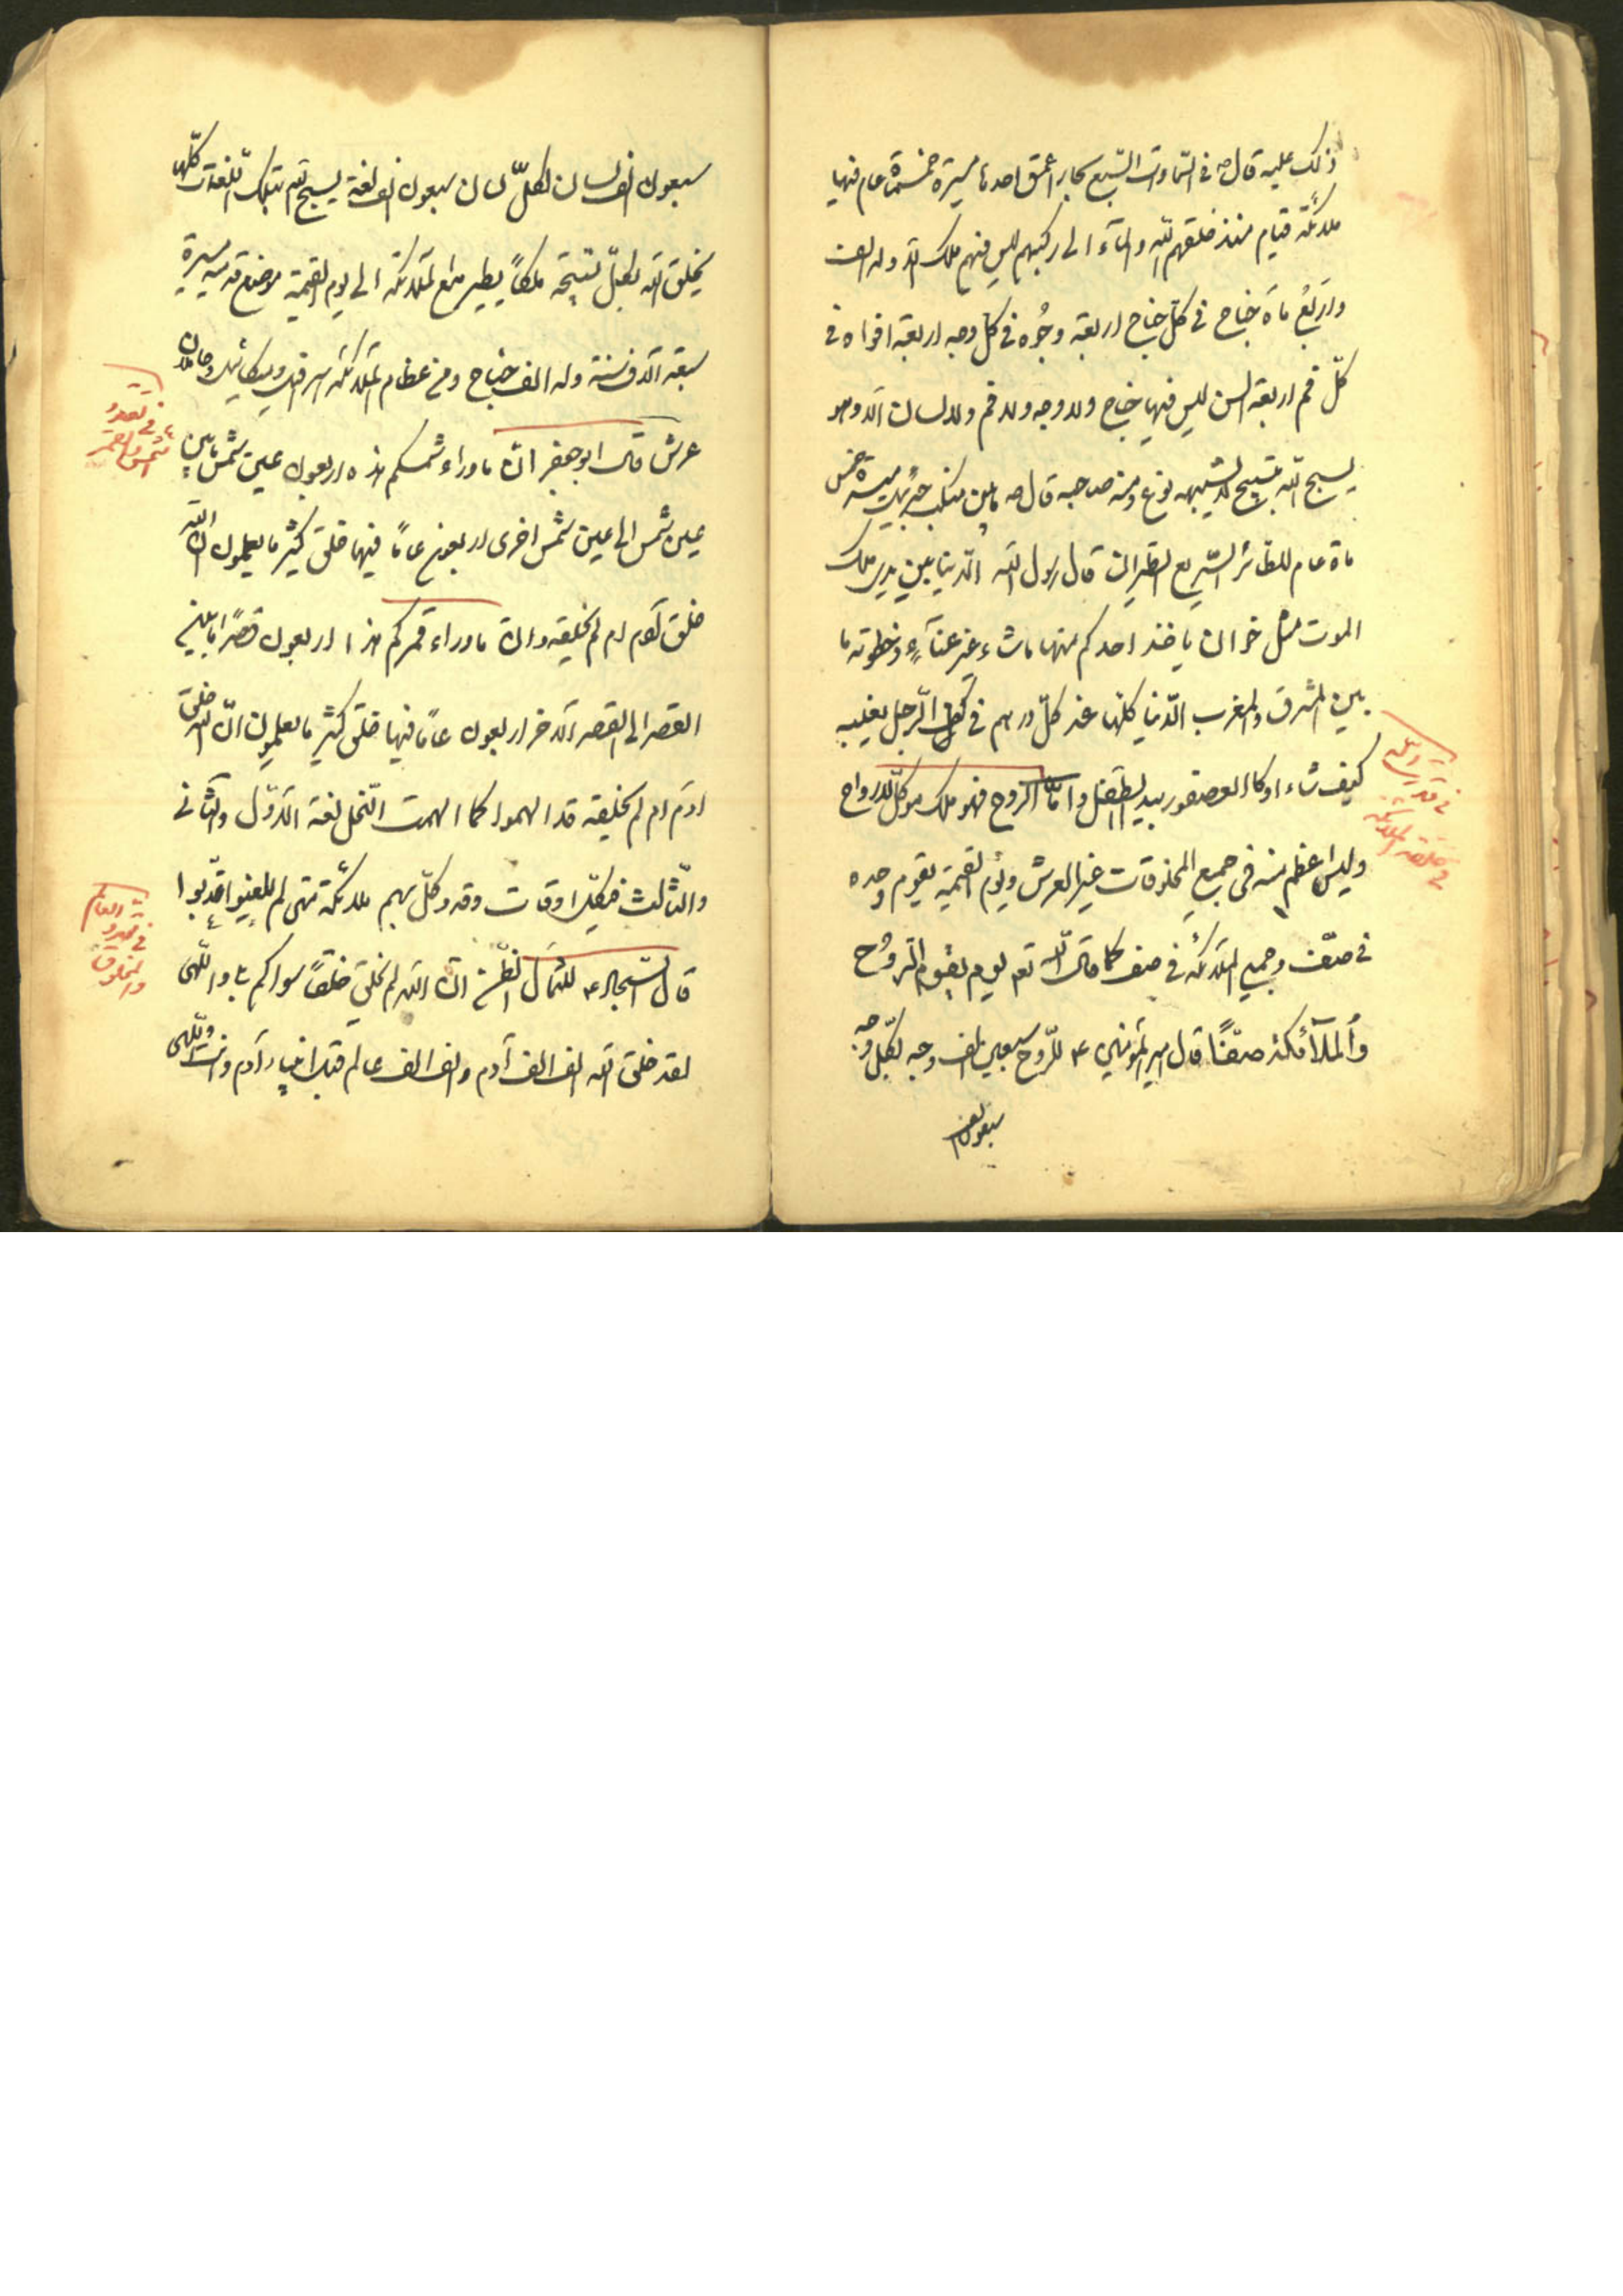 ذلک علیه قال ص فی السّماوات السّبع بحار عمق احدها مسیرة خمسمأة عام فیها
ملائکة قیام منذ خلقهم اللّه والمآء الی رکبهم لیس فیهم ملک الّا وله الف
واَربَعُ مأة جناح فی کلّ جناح اربعة وجُوه فی کلّ وجه اربعة افواه فی
کلّ فم اربعة السن لیس فیها جناح ولا وجه ولا فم ولا لسان الّا وهو
یسبح اللّه بتسبیح لا یشبهه نوع منه صاحبه قال ص مابین منکب جبرئیل مسیرة خمس
مأة عام للطّائر السّریع الطّیران قال رسول اللّه الدّنیا بین یدی ملک
الموت مثل خوان یاخذ احدکم منها ما شاء غیر عنآءٍ وخطوته ما
بین المشرق والمغرب الدّنیا کلّها عنده کدرهم فی کفّ الرّجل یقلبه
کیف شاء او کالعصفور بید الطّفل وامّا الرّوح فهو ملک موکّل للارواح
ولیس اعظم منه فی جمیع المخلوقات غیر العرش ویوم القیمة یقوم وحده
فی صفّ وجمیع الملائکة فی صف کما قال اللّه تع یوم یقوم الرّوُح
وَالملآئکة صفّاً قال امیرالمؤمنین ع للرّوح سبعین الف وجه لکلّ وجه
سبعون الف
سبعون الف لسان لکلّ لسان سبعون الف لغة یسبح اللّه بتلک اللّغات کلّها
یخلق اللّه بکلّ تسبیحة ملکاً یطیر مع الملائکة الی یوم القیمة موضع قدمیه مسیرة
سبعة آلاف سنة وله الف جناح ومن عظام الملائکة اسرافیل ومیکائیل وحاملان
عرش قال ابوجعفر انّ ماوراء شمسکم هذه اربعون عین شمس مابین
عین شمس الی عین شمس اخری اربعون عاماً فیها خلق کثیر ما یعلمون انّ اللّه
خلق آدم ام لم یخلقه وانّ ماوراء قمرکم هذا اربعون قرصاً مابین
القصر الی القصر الآخر اربعون عاماً فیها خلق کثیر ما یعلمون انّ اللّه خلق
ادم ام لم یخلقه قد الهموا کما الهمت النّحل لعنة الاوّل والثّانی
والثّالث فی کلّ اوقات وقد وکلّ بهم ملائکة متی لم یلعنوا عُذّبوا
قال السّجّاد ع للثّمالی اتظنّ انّ اللّه لم یخلق خلقاً سواکم بلی واللّه
لقد خلق اللّه الف الف آدم والف الف عالم
فی تعدد
الشمس والقمر
فی تعدد العالم
والمخلوق